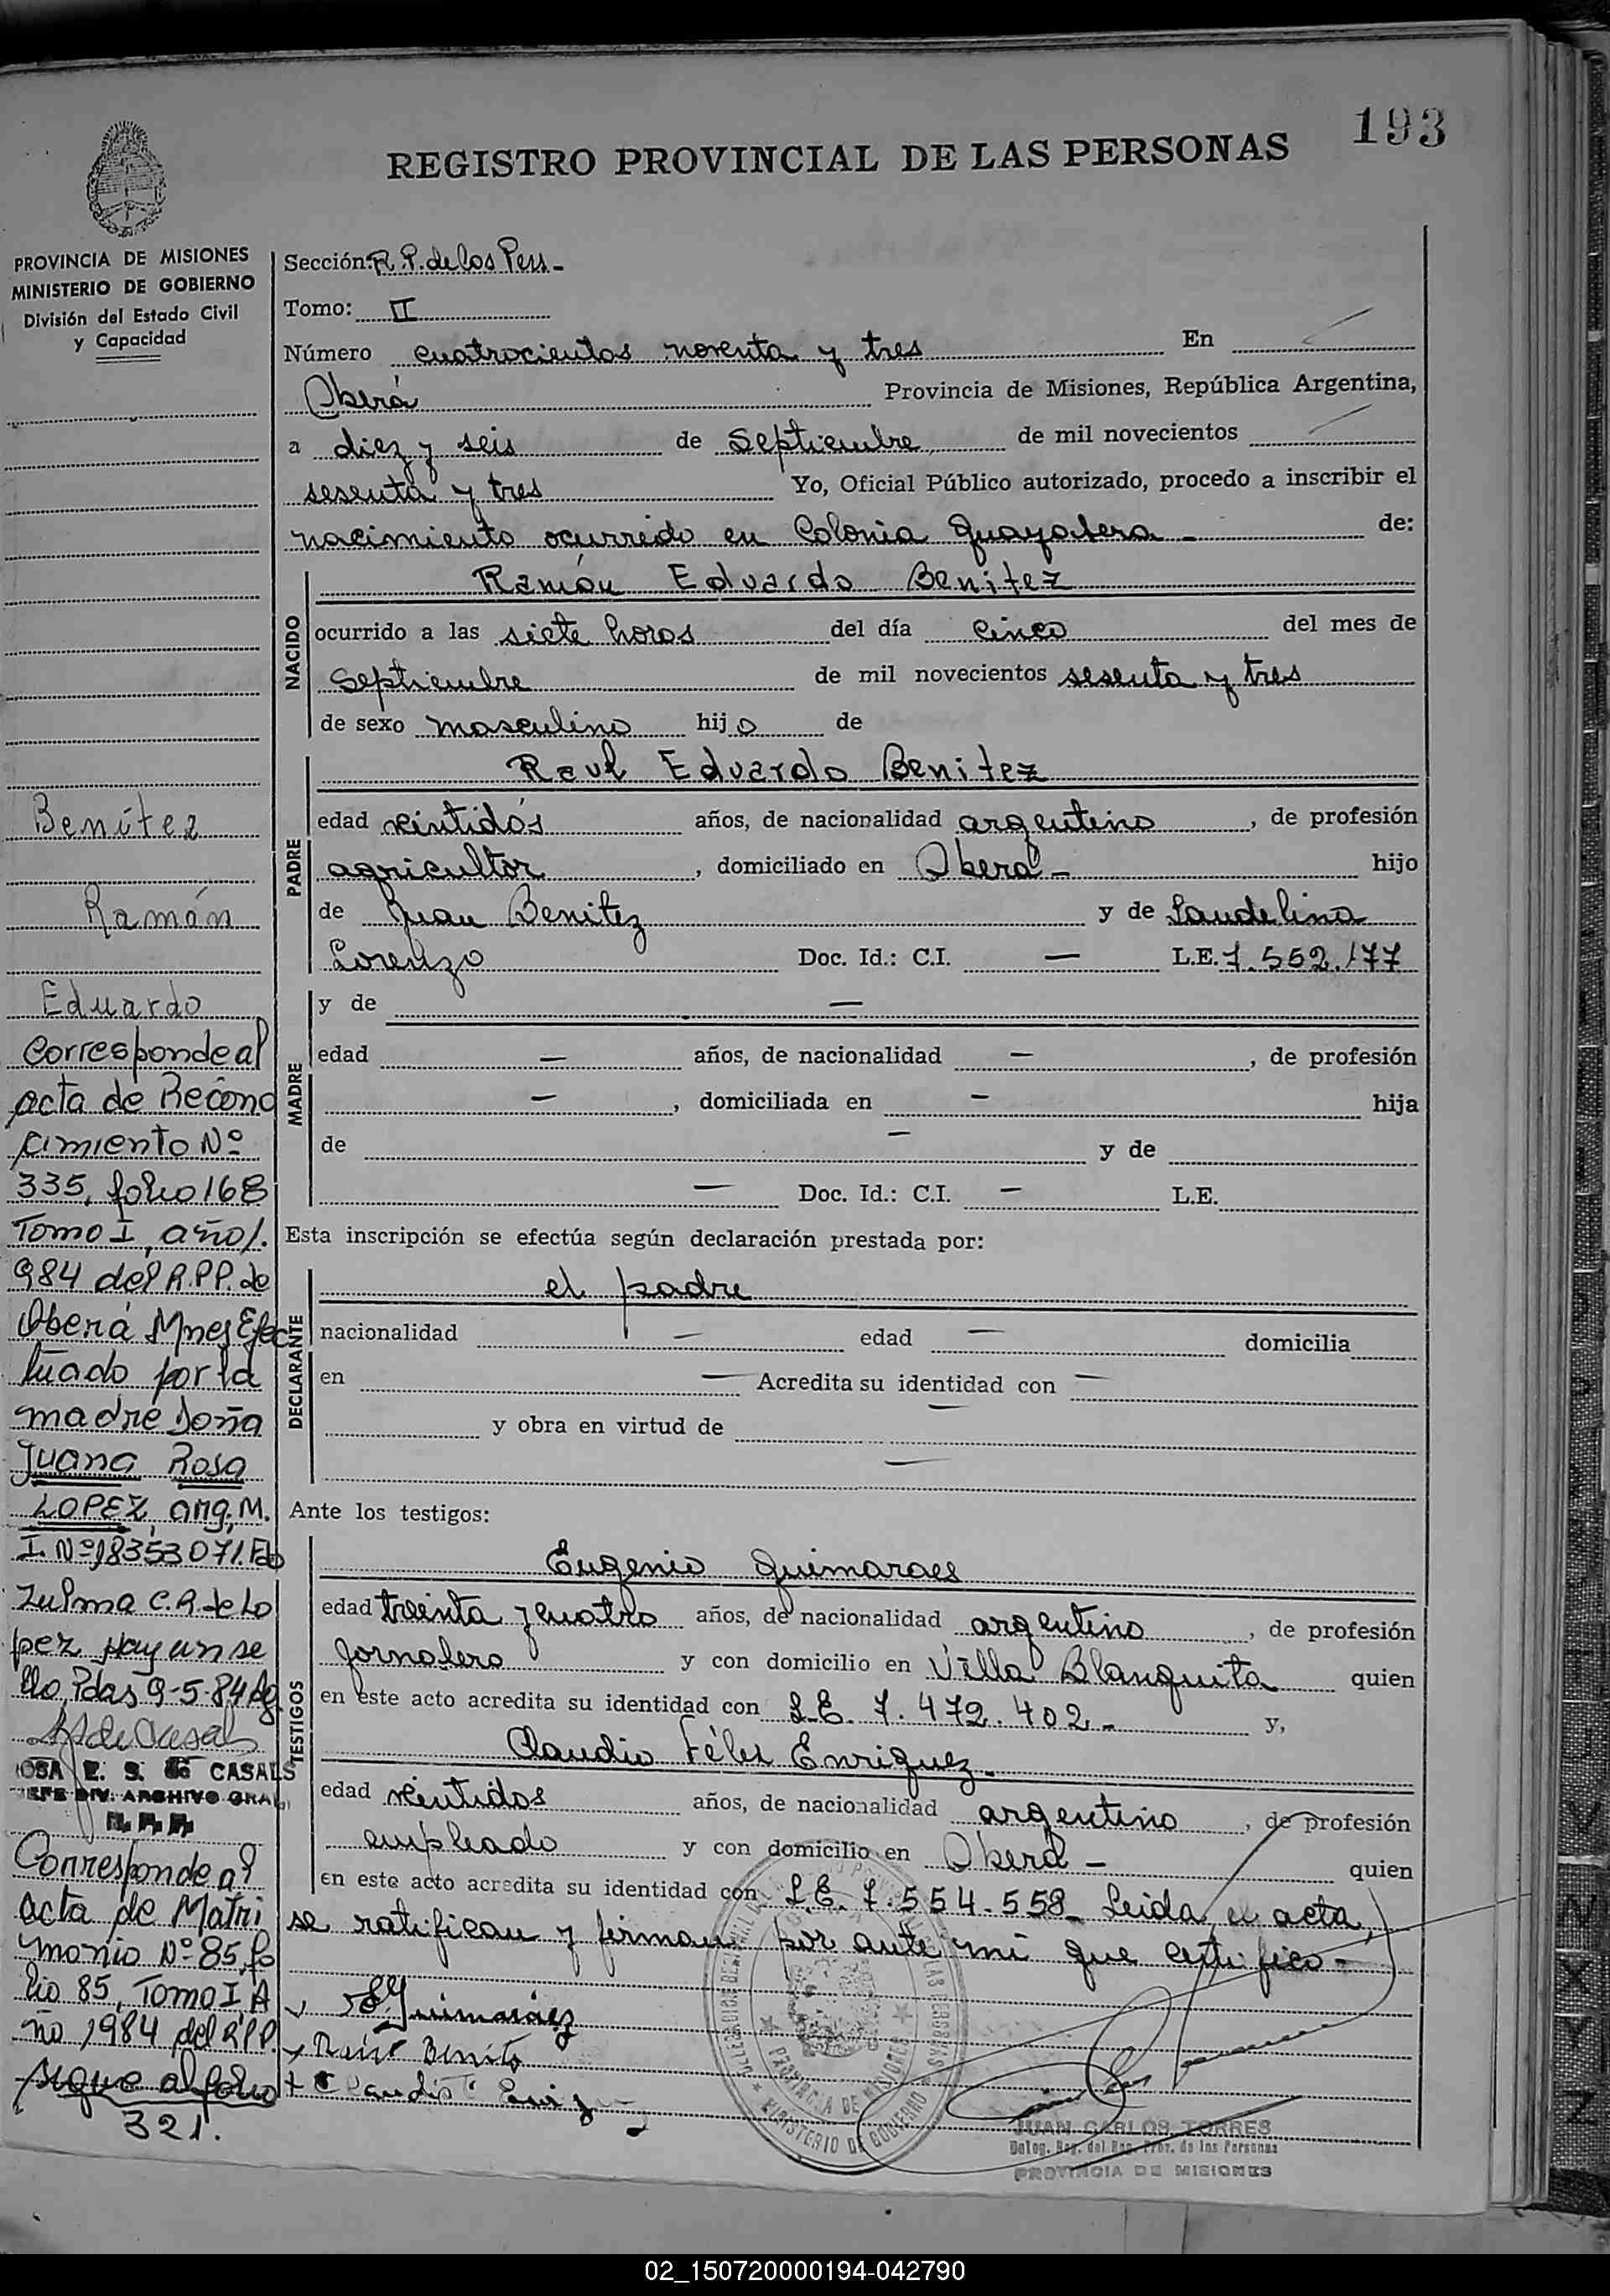 193
REGISTRO PROVINCIAL DE LAS PERSONAS
PROVINCIA DE MISIONES
MINISTERIO DE GOBIERNO
División del Estado Civil
y Capacidad
Sección: R.P. de los Pers -
Tomo: II
Número cuatrocientos noventa y tres En
Oberá Provincia de Misiones, República Argentina,
a diez y seis de Septiembre de mil novecientos
sesenta y tres Yo, Oficial Público autorizado, procedo a inscribir el
nacimiento ocurrido en Colonia Guayabera - de:
NACIDO
Ramón Eduardo Benitez
ocurrido a las siete horas del día cinco del mes de
Septiembre de mil novecientos sesenta y tres
de sexo masculino hijo de
PADRE
Raul Eduardo Benitez
edad veintidós años, de nacionalidad argentino, de profesión
agricultor, domiciliado en Oberá - hijo
de Juan Benitez y de Laudelina
Lorenzo Doc. Id.: C.I. — L.E. 7.552.177
MADRE
y de —
edad — años, de nacionalidad —, de profesión
—, domiciliada en — hija
de — y de
— Doc. Id.: C.I. — L.E.
Esta inscripción se efectúa según declaración prestada por:
DECLARANTE
el padre
nacionalidad — edad — domicilia
en — Acredita su identidad con —
y obra en virtud de —
—
Ante los testigos:
TESTIGOS
Eugenio Guimaraes
edad treinta y cuatro años, de nacionalidad argentino, de profesión
jornalero y con domicilio en Villa Blanquita quien
en este acto acredita su identidad con L.E. 7.472.402 - y,
Claudio Félix Enriquez -
edad veintidos años, de nacionalidad argentino, de profesión
empleado y con domicilio en Oberá - quien
en este acto acredita su identidad con L.E. 7.554.558 - Leida el acta,
se ratifican y firman por ante mi que certifico -
Guimaráez
Benito
JUAN CARLOS TORRES
Deleg. Reg. del Reg. Prov. de las Personas
PROVINCIA DE MISIONES
PROVINCIA DE MISIONES
MINISTERIO DE GOBIERNO
Benítez
Ramón
Eduardo
Corresponde al
acta de Recono
cimiento Nº
335, folio 168
Tomo I, año 1.
984 del R.P.P. de
Oberá Mnes Efec
tuado por la
madre Doña
Juana Rosa
LOPEZ, arg, M.
I. Nº 18353071. Fdo
Zulma C.R. de Lo
pez hay un se
llo, Pdas 9-5-84 Ag
OSA E. S. de CASALS
JEFE DIV. ARCHIVO GRAL
R.P.P.
Corresponde al
acta de Matri
monio Nº 85, fo
lio 85, Tomo I, A
ño 1984 del R.P.P.
sigue al folio
321.
02_150720000194-042790